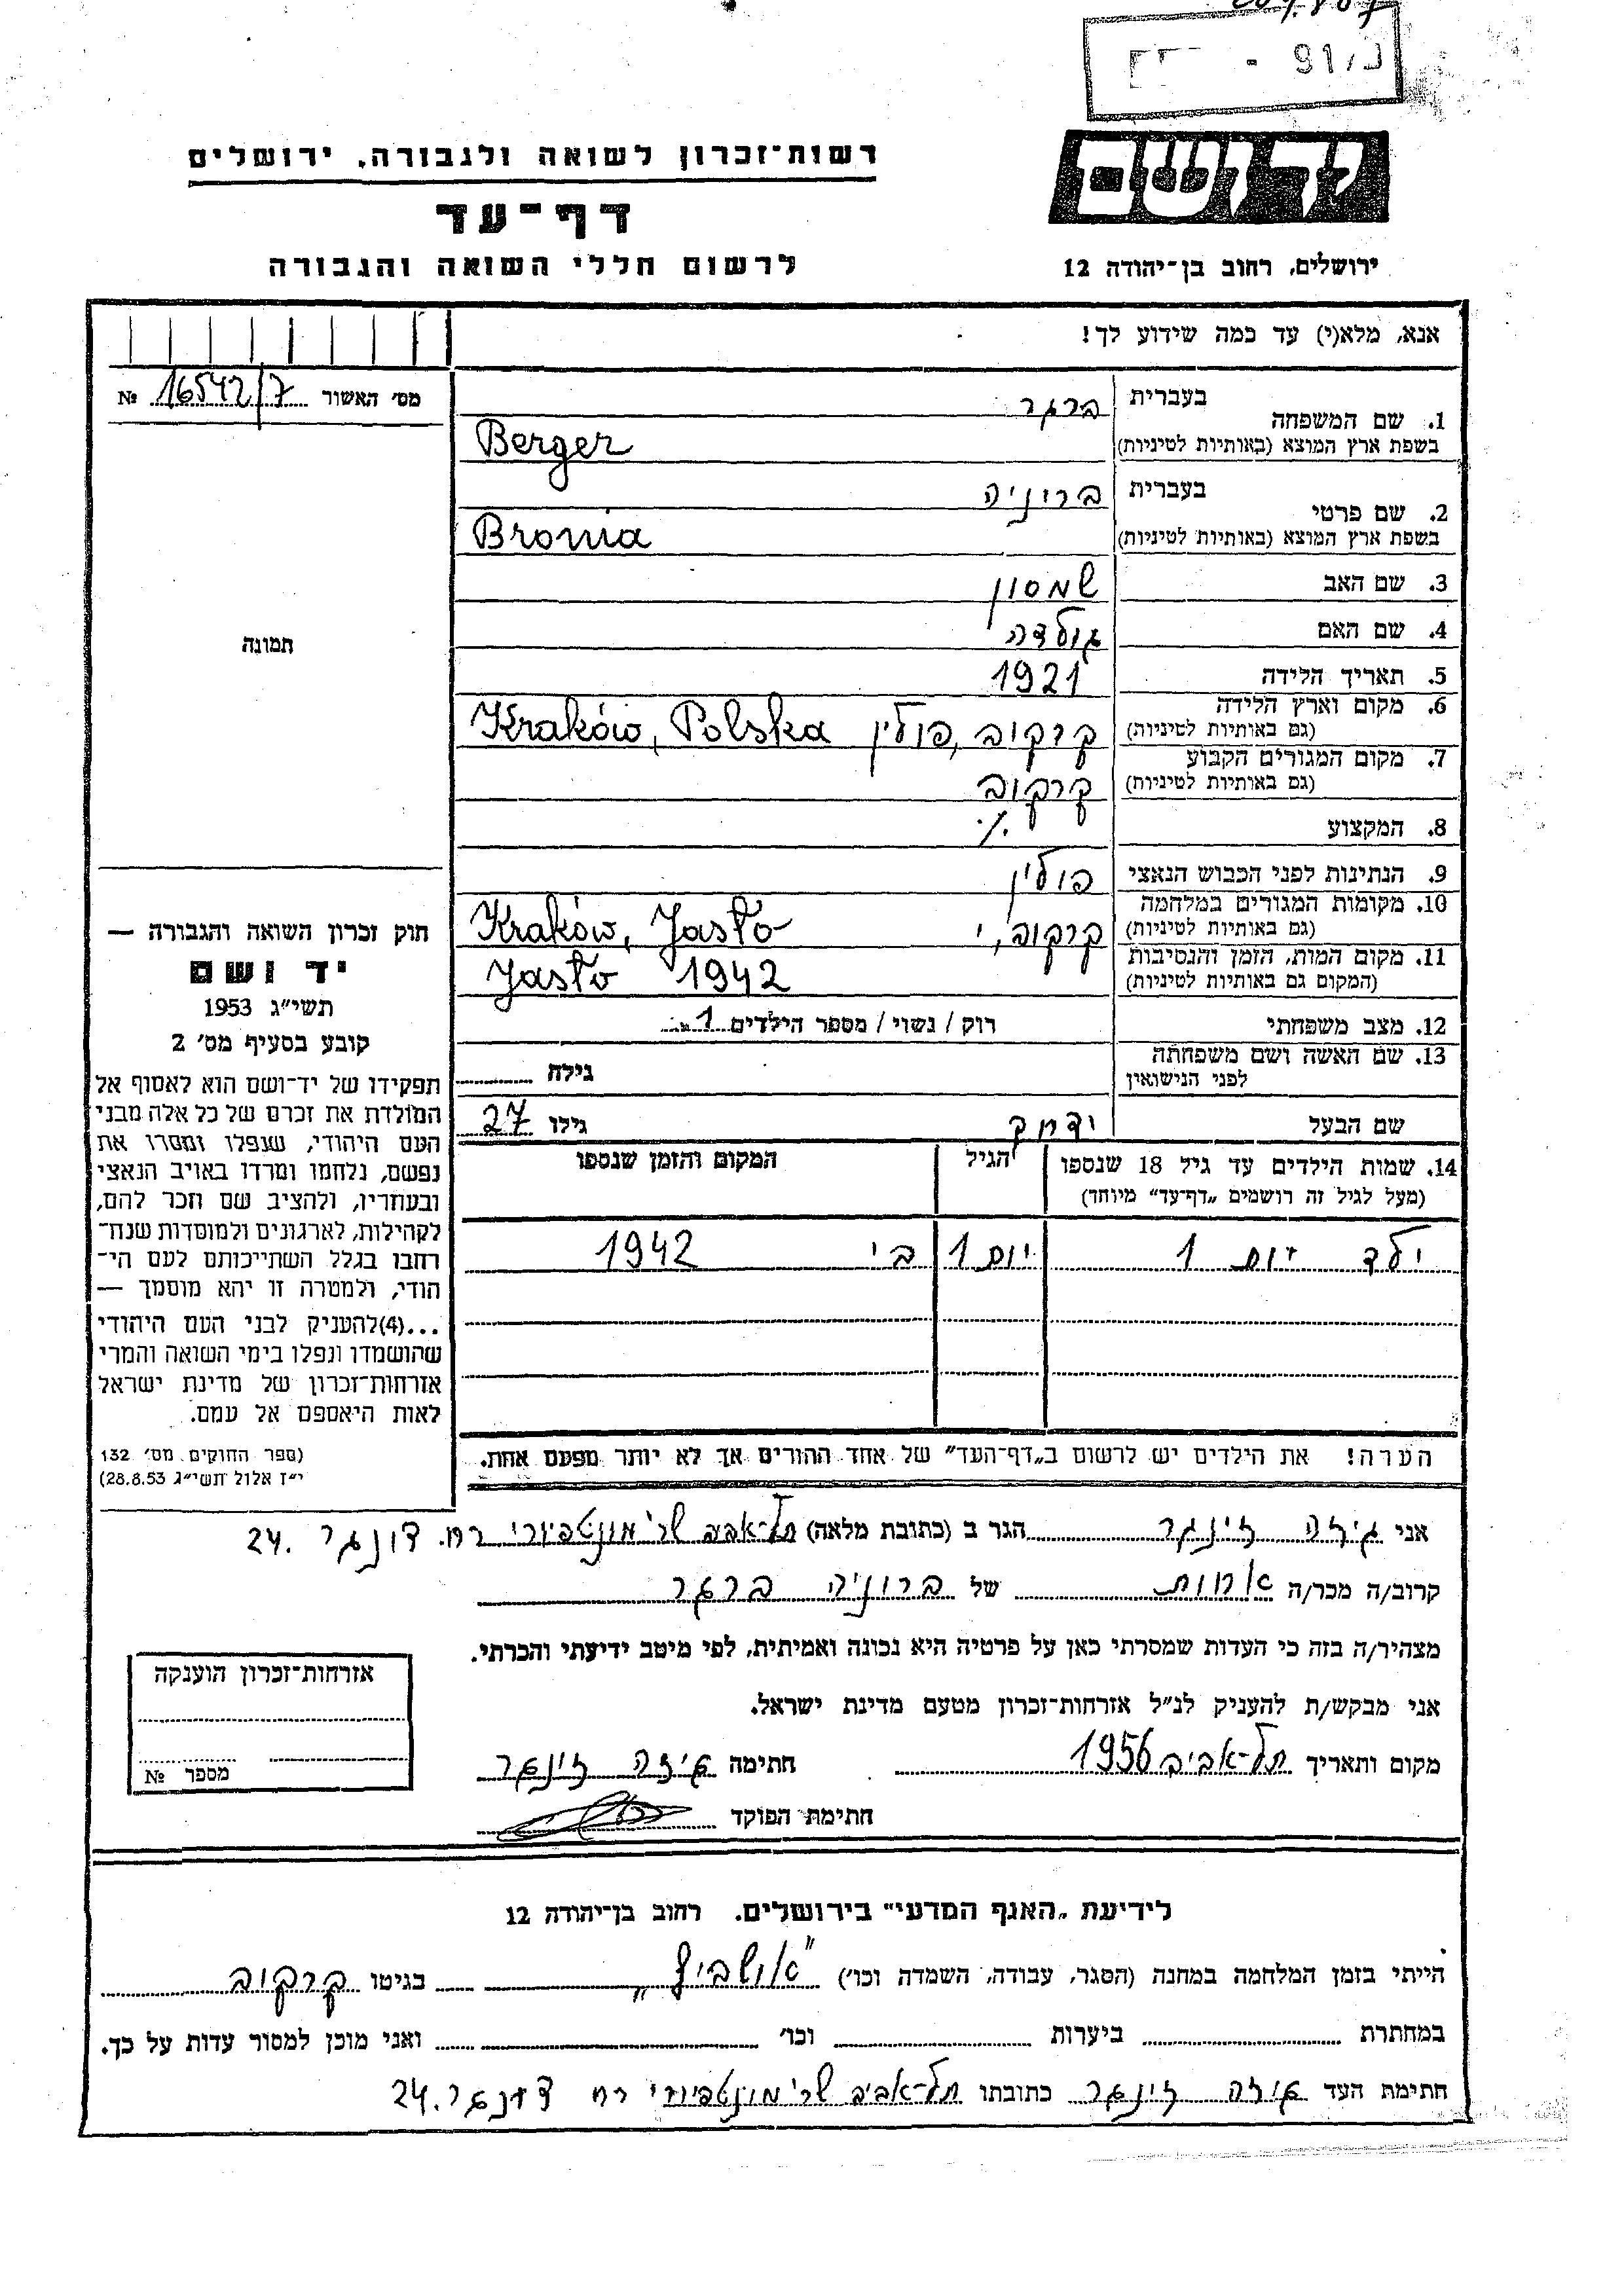 יד ושם
רשות-זכרון לשואה ולגבורה, ירושלים
דף-עד
לרשום חללי השואה והגבורה
ירושלים, רחוב בן-יהודה 12
אנא, מלא(י) עד כמה שידוע לך!
מס' האשור 16542/7 №
1. שם המשפחה בעברית ברגר
בשפת ארץ המוצא (באותיות לטיניות) Berger
2. שם פרטי בעברית ברוניה
בשפת ארץ המוצא (באותיות לטיניות) Bronia
3. שם האב שמסון
4. שם האם גולדה
5. תאריך הלידה 1921
6. מקום וארץ הלידה (גם באותיות לטיניות) קרקוב, פולין Kraków, Polska
7. מקום המגורים הקבוע (גם באותיות לטיניות) קרקוב
8. המקצוע ./.
9. הנתינות לפני הכבוש הנאצי פולין
10. מקומות המגורים במלחמה (גם באותיות לטיניות) קרקוב, י Kraków, Jasło
11. מקום המות, הזמן והנסיבות (המקום גם באותיות לטיניות) Jasło 1942
12. מצב משפחתי רוק / נשוי / מספר הילדים 1
13. שם האשה ושם משפחתה לפני הנישואין גילה
שם הבעל גילו 27
14. שמות הילדים עד גיל 18 שנספו
(מעל לגיל זה רושמים "דף-עד" מיוחד)
הגיל
המקום והזמן שנספו
ילד יום 1 יום 1 בי 1942
הערה! את הילדים יש לרשום ב"דף-העד" של אחד ההורים אך לא יותר מפעם אחת.
תמונה
חוק זכרון השואה והגבורה —
יד ושם
תשי"ג 1953
קובע בסעיף מס' 2
תפקידו של יד-ושם הוא לאסוף אל
המולדת את זכרם של כל אלה מבני
העם היהודי, שנפלו ומסרו את
נפשם, נלחמו ומרדו באויב הנאצי
ובעוזריו, ולהציב שם וזכר להם,
לקהילות, לארגונים ולמוסדות שנח-
רבו בגלל השתייכותם לעם הי-
הודי, ולמטרה זו יהא מוסמך —
...(4)להעניק לבני העם היהודי
שהושמדו ונפלו בימי השואה והמרי
אזרחות-זכרון של מדינת ישראל
לאות היאספם אל עמם.
(ספר החוקים מס' 132
י"ז אלול תשי"ג 28.8.53)
אני גיזה זינגר הגר ב (כתובת מלאה) תל-אביב שכ' מונטפיורי רח. דונגר 24.
קרוב/ה מכר/ה אחות של ברוניה ברגר
מצהיר/ה בזה כי העדות שמסרתי כאן על פרטיה היא נכונה ואמיתית, לפי מיטב ידיעתי והכרתי.
אני מבקש/ת להעניק לנ"ל אזרחות-זכרון מטעם מדינת ישראל.
מקום ותאריך תל-אביב 1956 חתימה גיזה זינגר
חתימת הפוקד
אזרחות-זכרון הוענקה
מספר №
לידיעת "האגף המדעי" בירושלים. רחוב בן-יהודה 12
הייתי בזמן המלחמה במחנה (הסגר, עבודה, השמדה וכו') "אושביץ" בגיטו קרקוב
במחתרת ביערות וכו' ואני מוכן למסור עדות על כך.
חתימת העד גיזה זינגר כתובתו תל-אביב שכ' מונטפיורי רח דונגר 24.